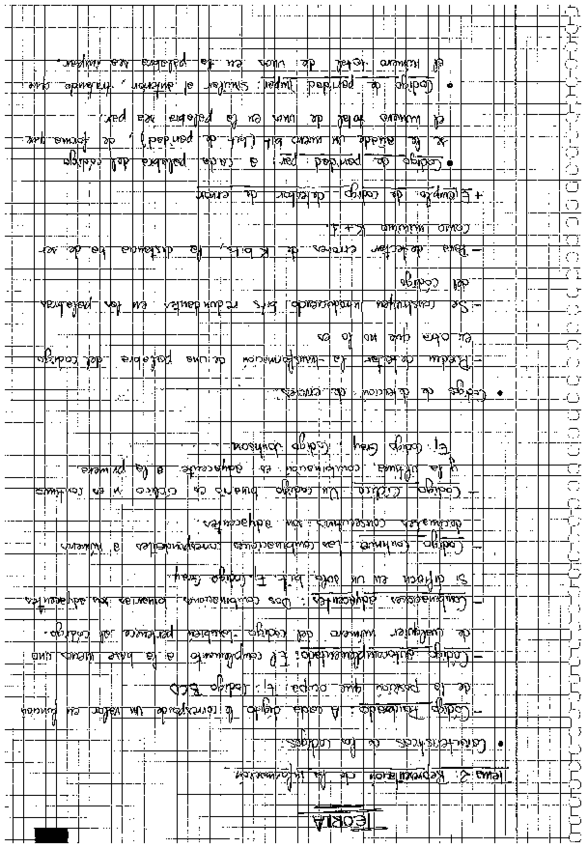 TEORIA
Tema 2: Representacion de la informacion.
• Caracteristicas de los codigos:
- Código Ponderado: A cada dígito le corresponde un valor en funcion
de la posición que ocupa. Ej: Código BCD
- Código autocomplementado: El complemento a la base menos uno
de cualquier número del código tambien pertenece al código.
- Combinaciones adyacentes: Dos combinaciones binarias son adyacentes
si difieren en un solo bit. Ej. Código Gray.
- Código Continuo: Las combinaciones correspondientes a números
decimales consecutivos son adyacentes
- Código Cíclico: Un codigo binario es cíclico si es continuo
y la ultima combinación es adyacente a la primera
Ej: Código Gray, Código Johnson
• Codigo de deteccion de errores.
- Pueden detectar la transformacion de una palabra del codigo
en otra que no lo es
- Se construyen introduciendo bits redundantes en las palabras
del código
- Para detectar errores de K bits, la distancia ha de ser
como minimo K+1.
+ Ejemplo de codigo detector de error
• Código de paridad par: a cada palabra del código
se le añade un nuevo bit (bit de paridad), de forma que
el numero total de unos en la palabra sea par.
• Código de paridad impar: similar al anterior, tratando que
el número total de unos en la palabra sea impar.